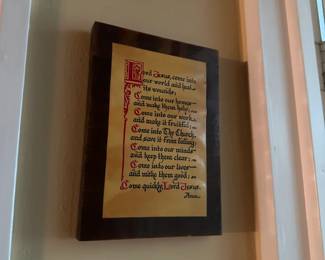 Lord Jesus, come into
our world and heal
its wounds;
Come into our homes
and make them holy;
Come into our work
and make it fruitful;
Come into The Church
and save it from failing;
Come into our minds
and keep them clear;
Come into our lives
and make them good;
Come quickly Lord Jesus.
Amen.